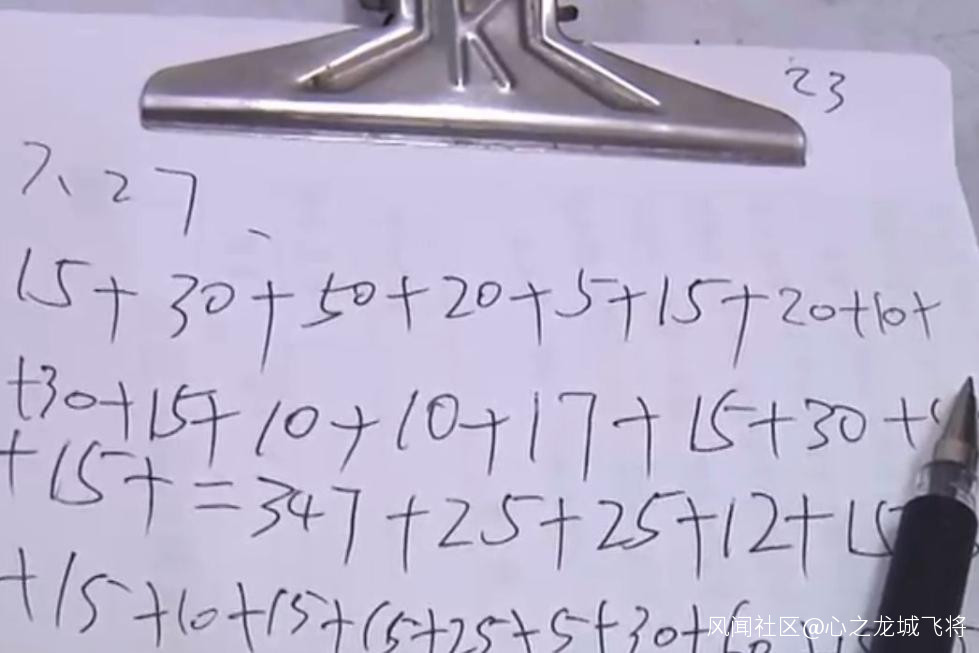 K
23
7、27、
15+30+50+20+5+15+20+10+
+30+15+10+10+17+15+30+
+15+=347+25+25+12+15
+15+10+15+15+25+5+30+60
风闻社区@心之龙城飞将